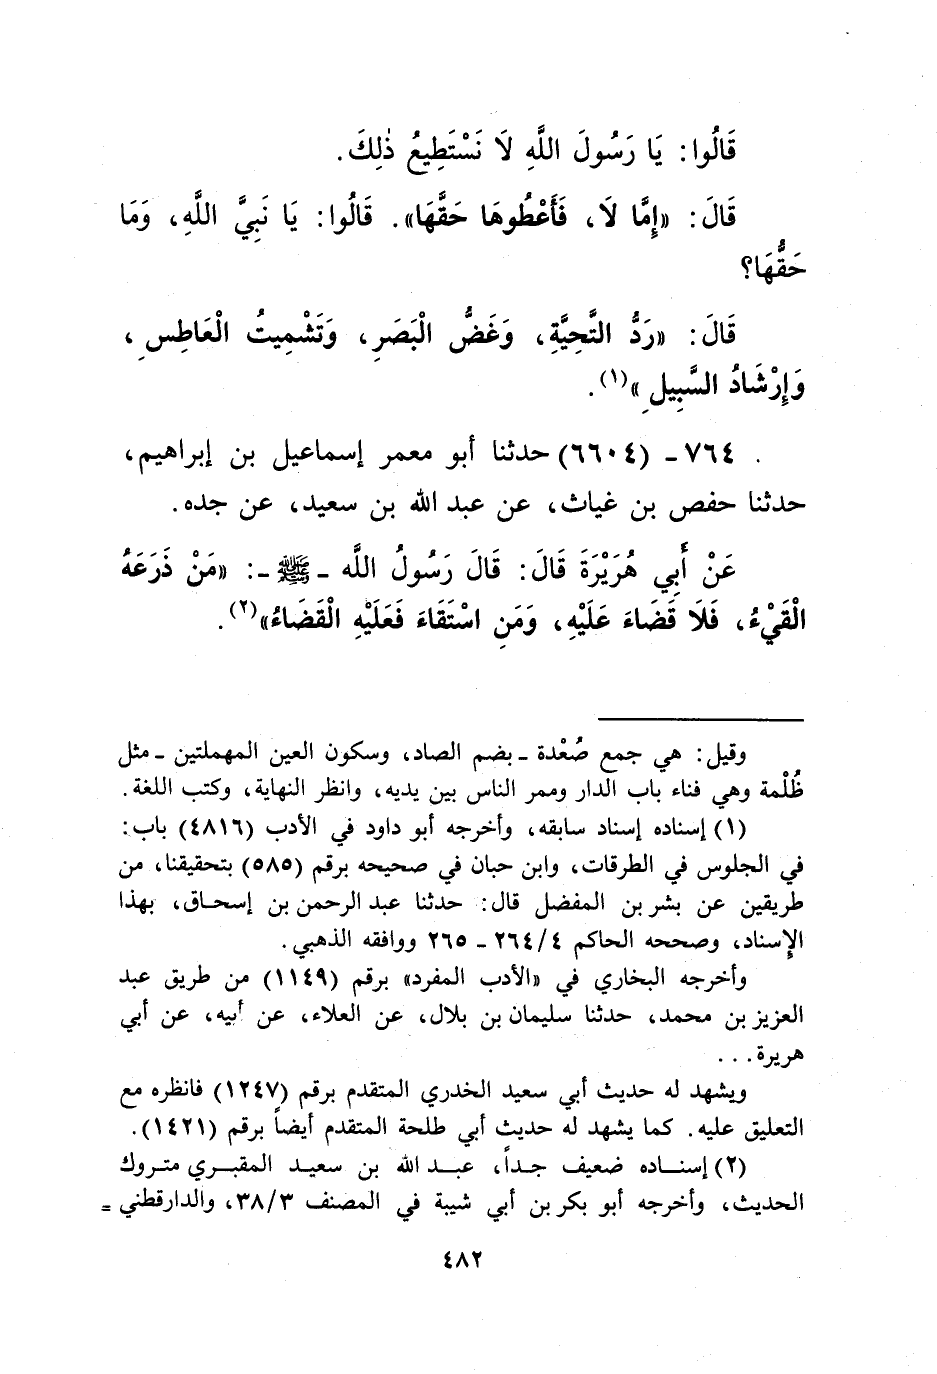 قَالُوا: يَا رَسُولَ اللَّهِ لَا نَسْتَطِيعُ ذٰلِكَ.
قَالَ: «إِمَّا لَا، فَأَعْطُوهَا حَقَّهَا». قَالُوا: يَا نَبِيَّ اللَّهِ، وَمَا
حَقُّهَا؟
قَالَ: «رَدُّ التَّحِيَّةِ، وَغَضُّ الْبَصَرِ، وَتَشْمِيتُ الْعَاطِسِ،
وَإِرْشَادُ السَّبِيلِ»(١).
٧٦٤ - (٦٦٠٤) حدثنا أبو معمر إسماعيل بن إبراهيم،
حدثنا حفص بن غياث، عن عبد الله بن سعيد، عن جده.
عَنْ أَبِي هُرَيْرَةَ قَالَ: قَالَ رَسُولُ اللَّه - ﷺ -: «مَنْ ذَرَعَهُ
الْقَيْءُ، فَلَا قَضَاءَ عَلَيْهِ، وَمَنِ اسْتَقَاءَ فَعَلَيْهِ الْقَضَاءُ»(٢).
وقيل: هي جمع صُعْدة - بضم الصاد، وسكون العين المهملتين - مثل
ظُلْمة وهي فناء باب الدار وممر الناس بين يديه، وانظر النهاية، وكتب اللغة.
(١) إسناده إسناد سابقه، وأخرجه أبو داود في الأدب (٤٨١٦) باب:
في الجلوس في الطرقات، وابن حبان في صحيحه برقم (٥٨٥) بتحقيقنا، من
طريقين عن بشر بن المفضل قال: حدثنا عبد الرحمن بن إسحاق، بهذا
الإسناد، وصححه الحاكم ٢٦٤/٤ - ٢٦٥ ووافقه الذهبي.
وأخرجه البخاري في «الأدب المفرد» برقم (١١٤٩) من طريق عبد
العزيز بن محمد، حدثنا سليمان بن بلال، عن العلاء، عن أبيه، عن أبي
هريرة...
ويشهد له حديث أبي سعيد الخدري المتقدم برقم (١٢٤٧) فانظره مع
التعليق عليه. كما يشهد له حديث أبي طلحة المتقدم أيضاً برقم (١٤٢١).
(٢) إسناده ضعيف جداً، عبد الله بن سعيد المقبري متروك
الحديث، وأخرجه أبو بكر بن أبي شيبة في المصنف ٣٨/٣، والدارقطني =
٤٨٢